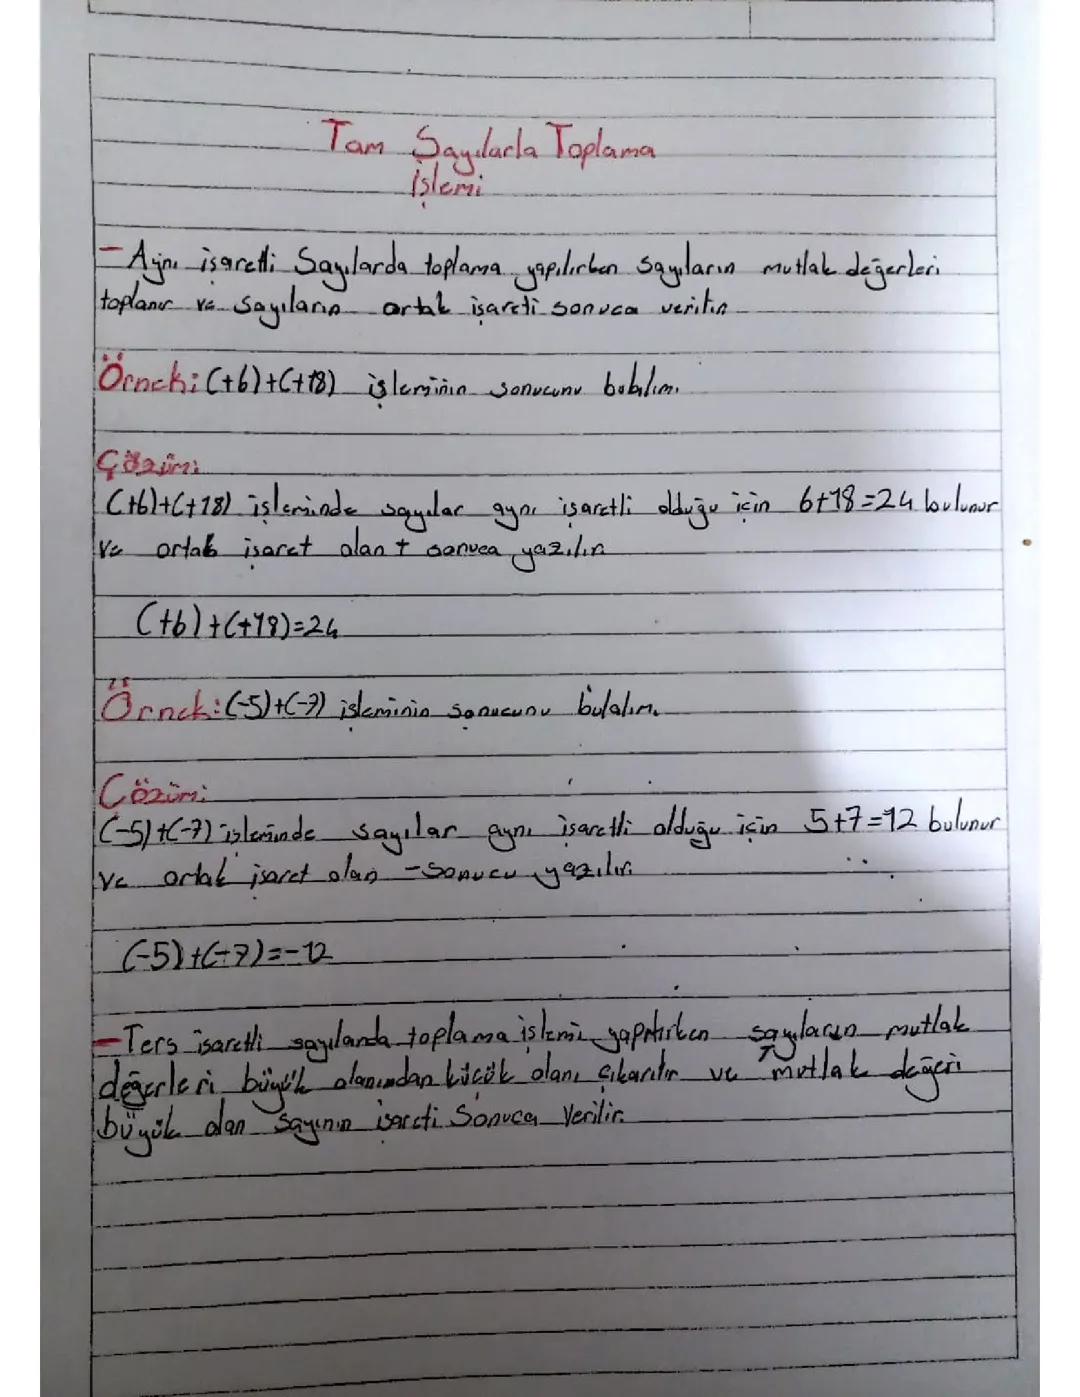 Tam Sayılarla Toplama
İşlemi
- Aynı işaretli Sayılarda toplama yapılırken sayıların mutlak değerleri
toplanır ve sayıların ortak işareti sonuca verilir.
Örnek: (+6)+(+18) işleminin sonucunu bulalım.
Çözüm:
(+6)+(+18) işleminde sayılar aynı işaretli olduğu için 6+18=24 bulunur
ve ortak işaret olan + sonuca yazılır.
(+6)+(+18)=24
Örnek: (-5)+(-7) işleminin sonucunu bulalım.
Çözüm:
(-5)+(-7) işleminde sayılar aynı işaretli olduğu için 5+7=12 bulunur
ve ortak işaret olan - sonucu yazılır.
(-5)+(-7)=-12
- Ters işaretli sayılarda toplama işlemi sayıların mutlak
değerleri büyük olanından küçük olanı çıkarılır ve mutlak değeri
büyük olan sayının işareti Sonuca verilir.